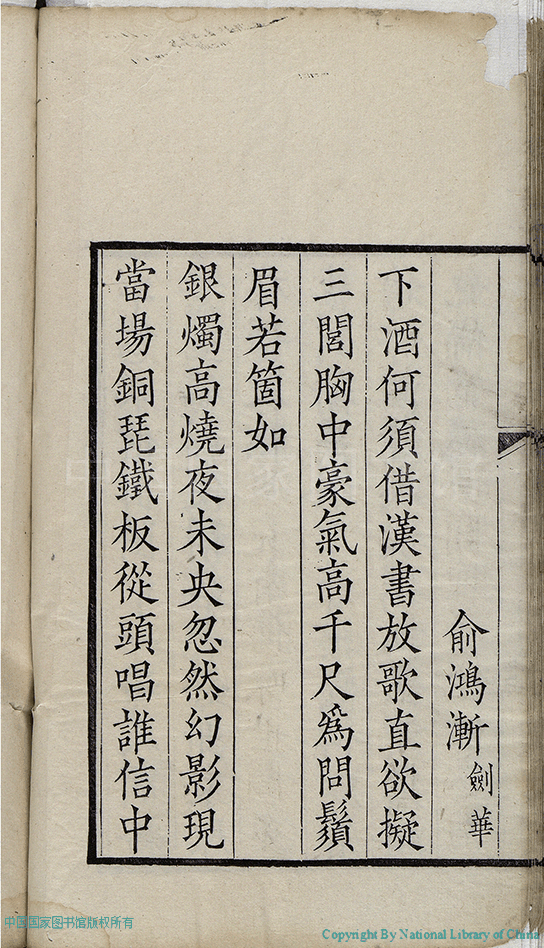 俞鴻漸劍華
下酒何須借漢書放歌直欲擬
三閭胸中豪氣高千尺爲問鬚
眉若箇如
銀燭高燒夜未央忽然幻影現
當場銅琵鐵板從頭唱誰信中
中国国家图书馆版权所有
Copyright By National Library of China